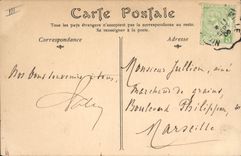 Carte Postale
Tous les pays étrangers n'acceptent pas la correspondance au recto.
Se renseigner à la poste
Correspondance
Adresse
Nos bons souvenirs à tous
Monsieur Jullien, aîné
Marchand de grains,
Boulevard Philippon
Marseille